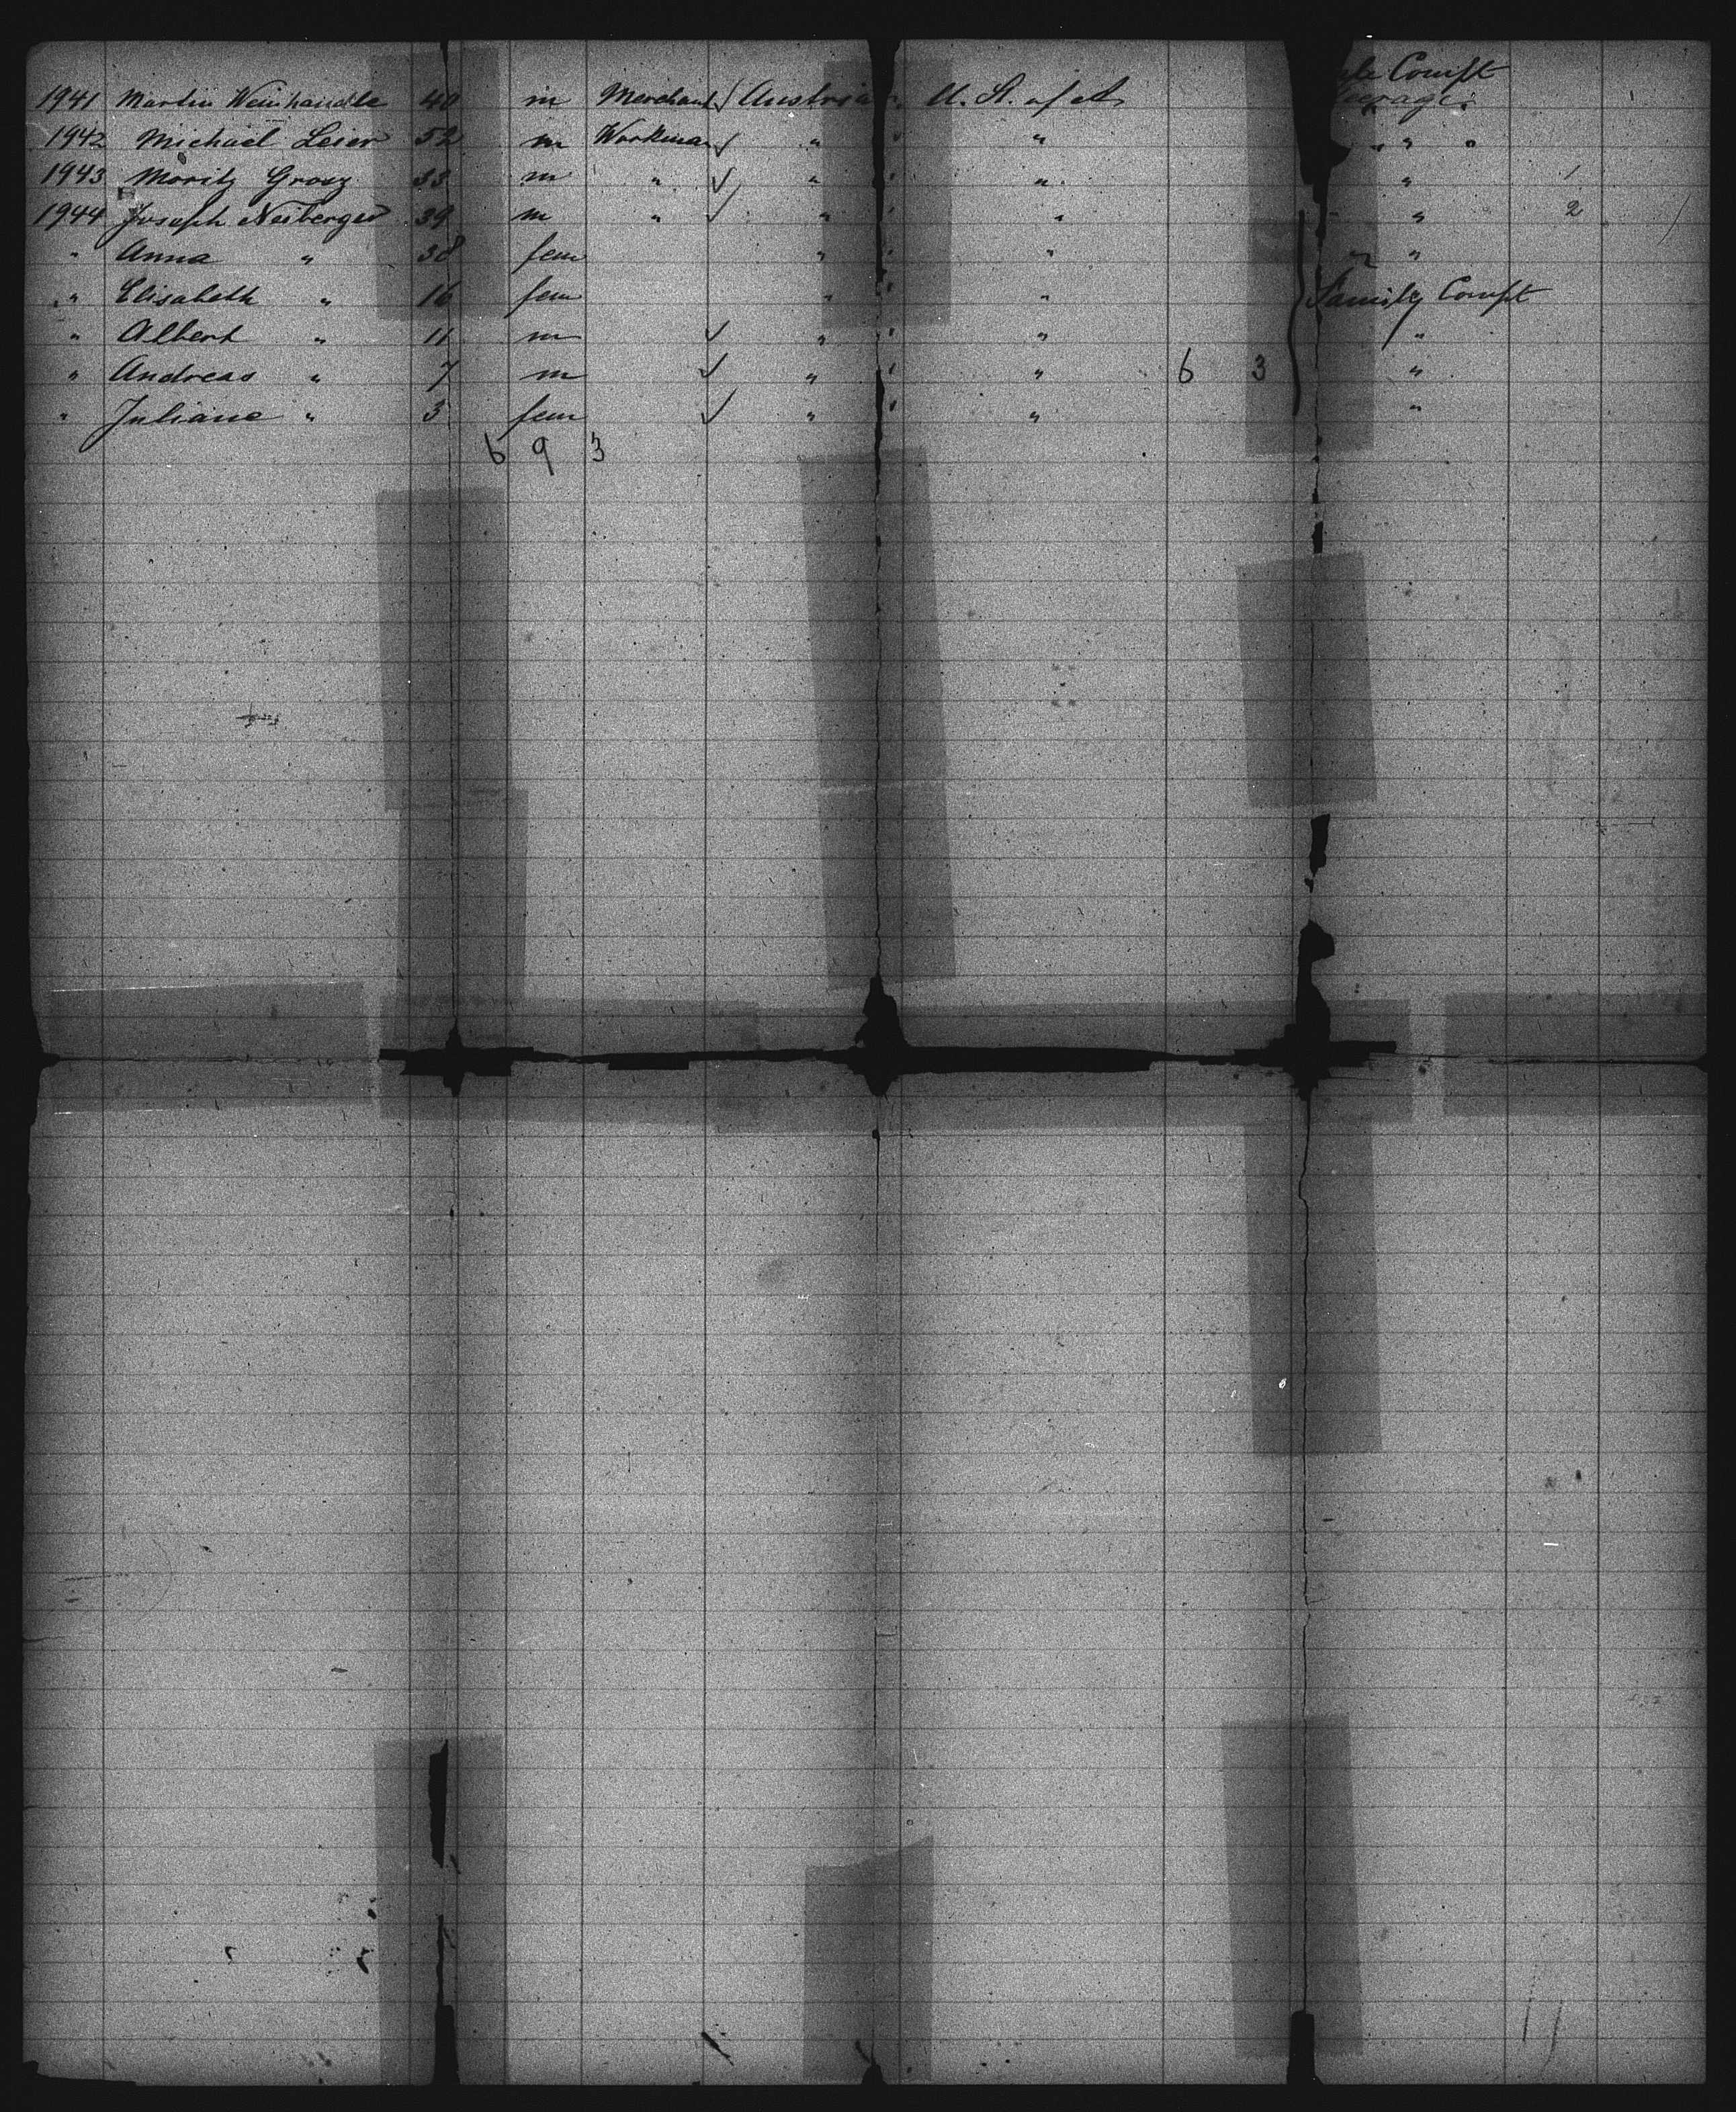 Compt
1941 Martin Weinhandle 40 m Merchant √ Austria " U. St. of A.
1942 Michael Leier 52 m Workman √ " " " " "
1943 Moritz Grosz 33 m " √ " " " "
1944 Joseph Neiberger 39 m " √ " " " " 2
" Anna " 38 fem " " " "
" Elisabeth " 16 fem " " " Family Compt
" Albert " 11 m √ " " " "
" Andreas " 7 m √ " " " 6 3 "
" Juliane " 3 fem √ " " " "
6 9 3